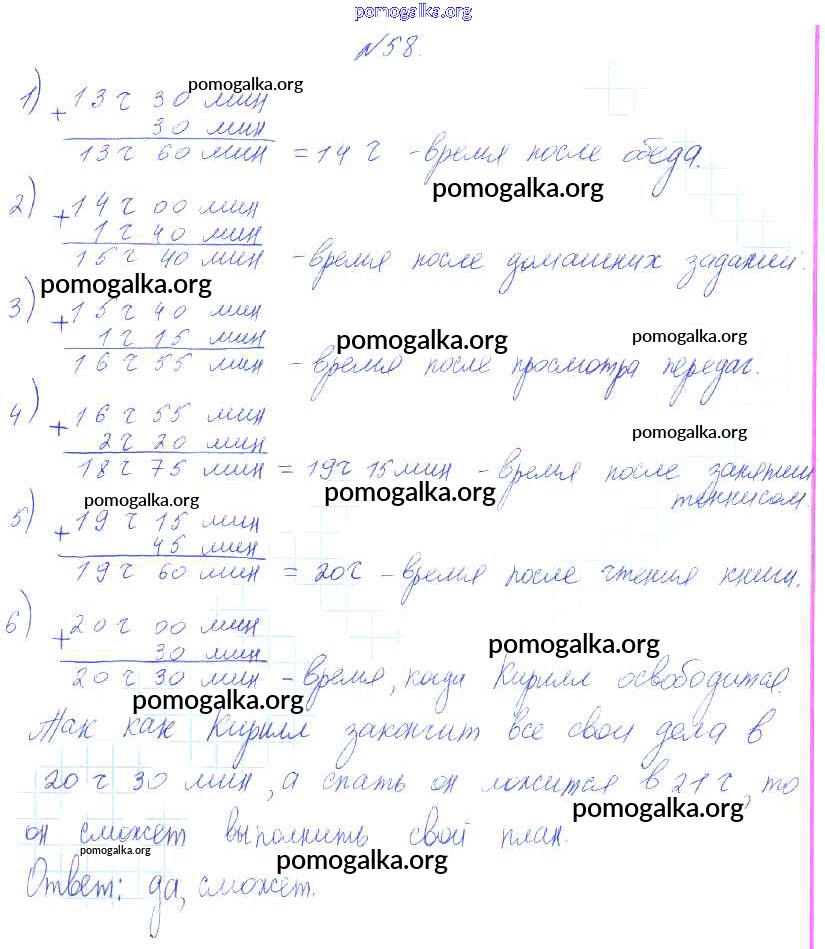 pomogalka.org
№58.
1) + 13 ч 30 мин pomogalka.org
30 мин
13 ч 60 мин = 14 ч - время после обеда.
pomogalka.org
2) + 14 ч 00 мин
1 ч 40 мин
15 ч 40 мин - время после домашних заданий.
pomogalka.org
3) + 15 ч 40 мин
1 ч 15 мин pomogalka.org pomogalka.org
16 ч 55 мин - время после просмотра передач.
4) + 16 ч 55 мин
2 ч 20 мин pomogalka.org
18 ч 75 мин = 19 ч 15 мин - время после занятий
теннисом.
pomogalka.org pomogalka.org
5) + 19 ч 15 мин
45 мин
19 ч 60 мин = 20 ч - время после чтения книги.
6) + 20 ч 00 мин
30 мин pomogalka.org
20 ч 30 мин - время, когда Кирилл освободится.
pomogalka.org
Так как Кирилл закончит все свои дела в
20 ч 30 мин, а спать он ложится в 21 ч, то
pomogalka.org
он сможет выполнить свой план.
pomogalka.org pomogalka.org
Ответ: да, сможет.